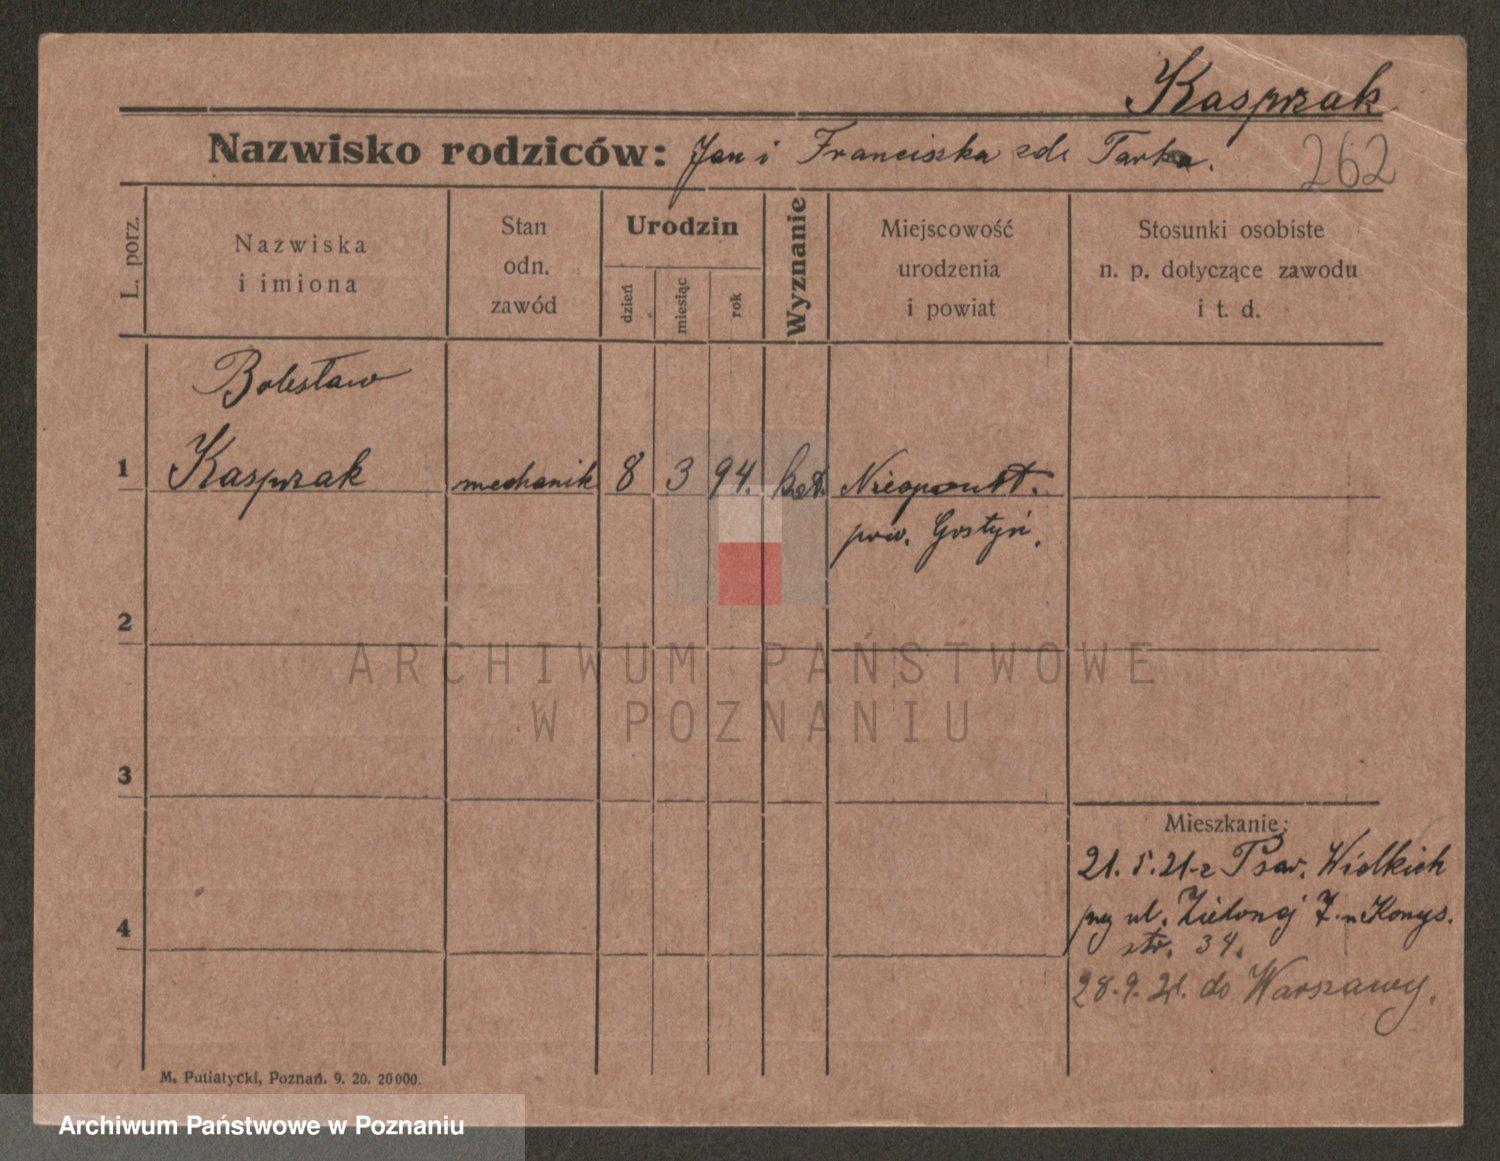 Kasprzak
Nazwisko rodziców: Jan i Franciszka zd. Tarka.
262
L. porz.
Nazwiska
i imiona
Stan
odn.
zawód
Urodzin
dzień
miesiąc
rok
Wyznanie
Miejscowość
urodzenia
i powiat
Stosunki osobiste
n. p. dotyczące zawodu
i t. d.
Bolesław
1 Kasprzak mechanik 8 3 94. kat.
pow. Gostyń.
2
ARCHIWUM PAŃSTWOWE
W POZNANIU
3
Mieszkanie:
21. 5. 21 z Wielkich
ul. Zielonej
4
str. 34.
28. 9. 21. do Warszawy.
M. Putiatycki, Poznań. 9. 20. 20000.
Archiwum Państwowe w Poznaniu